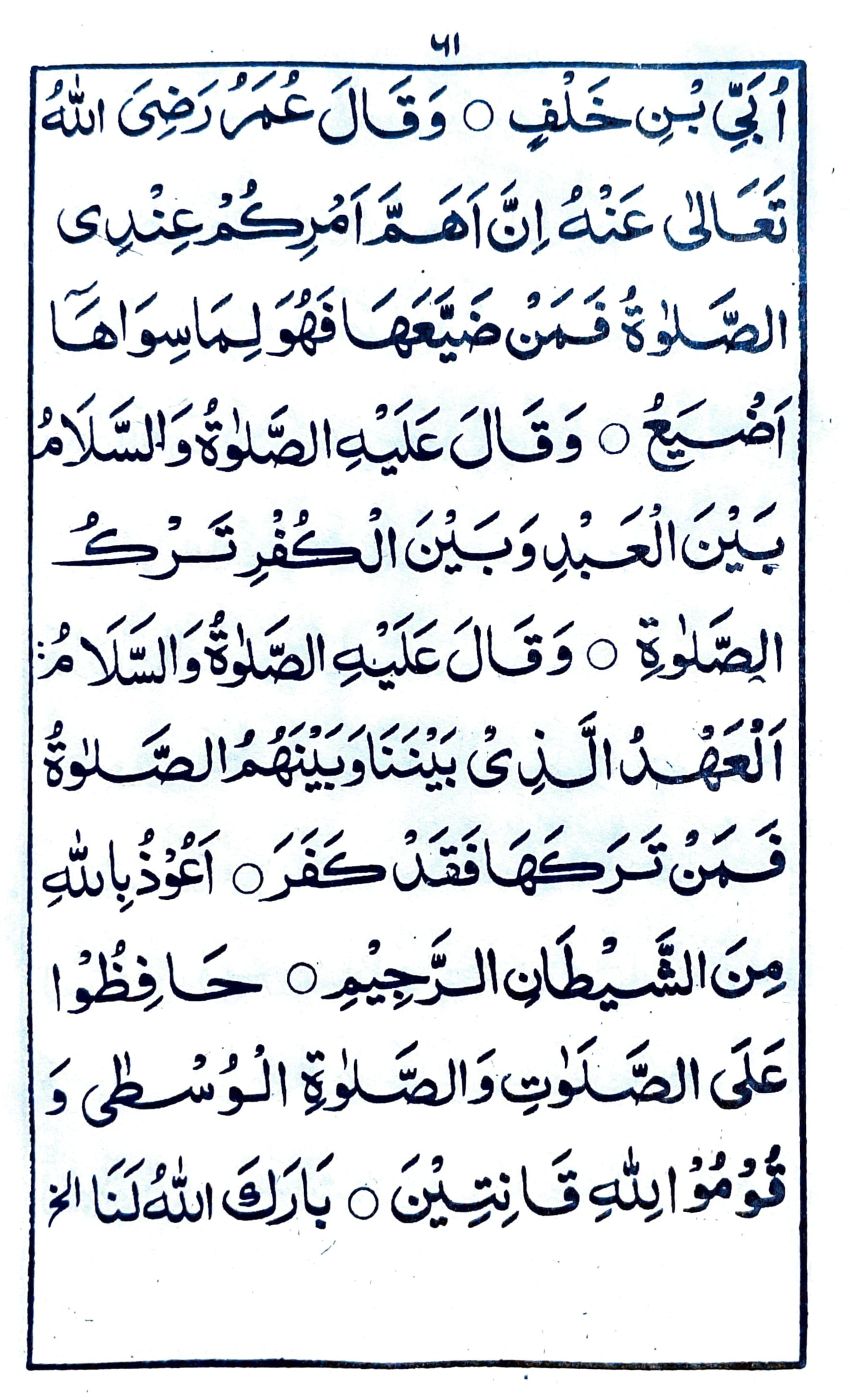 ٦١
اُبَيِّ بْنِ خَلْفٍ ○ وَقَالَ عُمَرُ رَضِيَ اللّٰهُ
تَعَالىٰ عَنْهُ اِنَّ اَهَمَّ اَمْرِكُمْ عِنْدِى
الصَّلٰوةُ فَمَنْ ضَيَّعَهَا فَهُوَ لِمَا سِوَاهَآ
اَضْيَعُ ○ وَقَالَ عَلَيْهِ الصَّلٰوةُ وَالسَّلَامُ
بَيْنَ الْعَبْدِ وَبَيْنَ الْكُفْرِ تَرْكُ
الصَّلٰوةِ ○ وَقَالَ عَلَيْهِ الصَّلٰوةُ وَالسَّلَامُ:
اَلْعَهْدُ الَّذِىْ بَيْنَنَا وَبَيْنَهُمُ الصَّلٰوةُ
فَمَنْ تَرَكَهَا فَقَدْ كَفَرَ ○ اَعُوْذُ بِاللّٰهِ
مِنَ الشَّيْطَانِ الرَّجِيْمِ ○ حَافِظُوْا
عَلَى الصَّلَوٰتِ وَالصَّلٰوةِ الْوُسْطٰى وَ
قُوْمُوْا لِلّٰهِ قَانِتِيْنَ ○ بَارَكَ اللّٰهُ لَنَا الخ